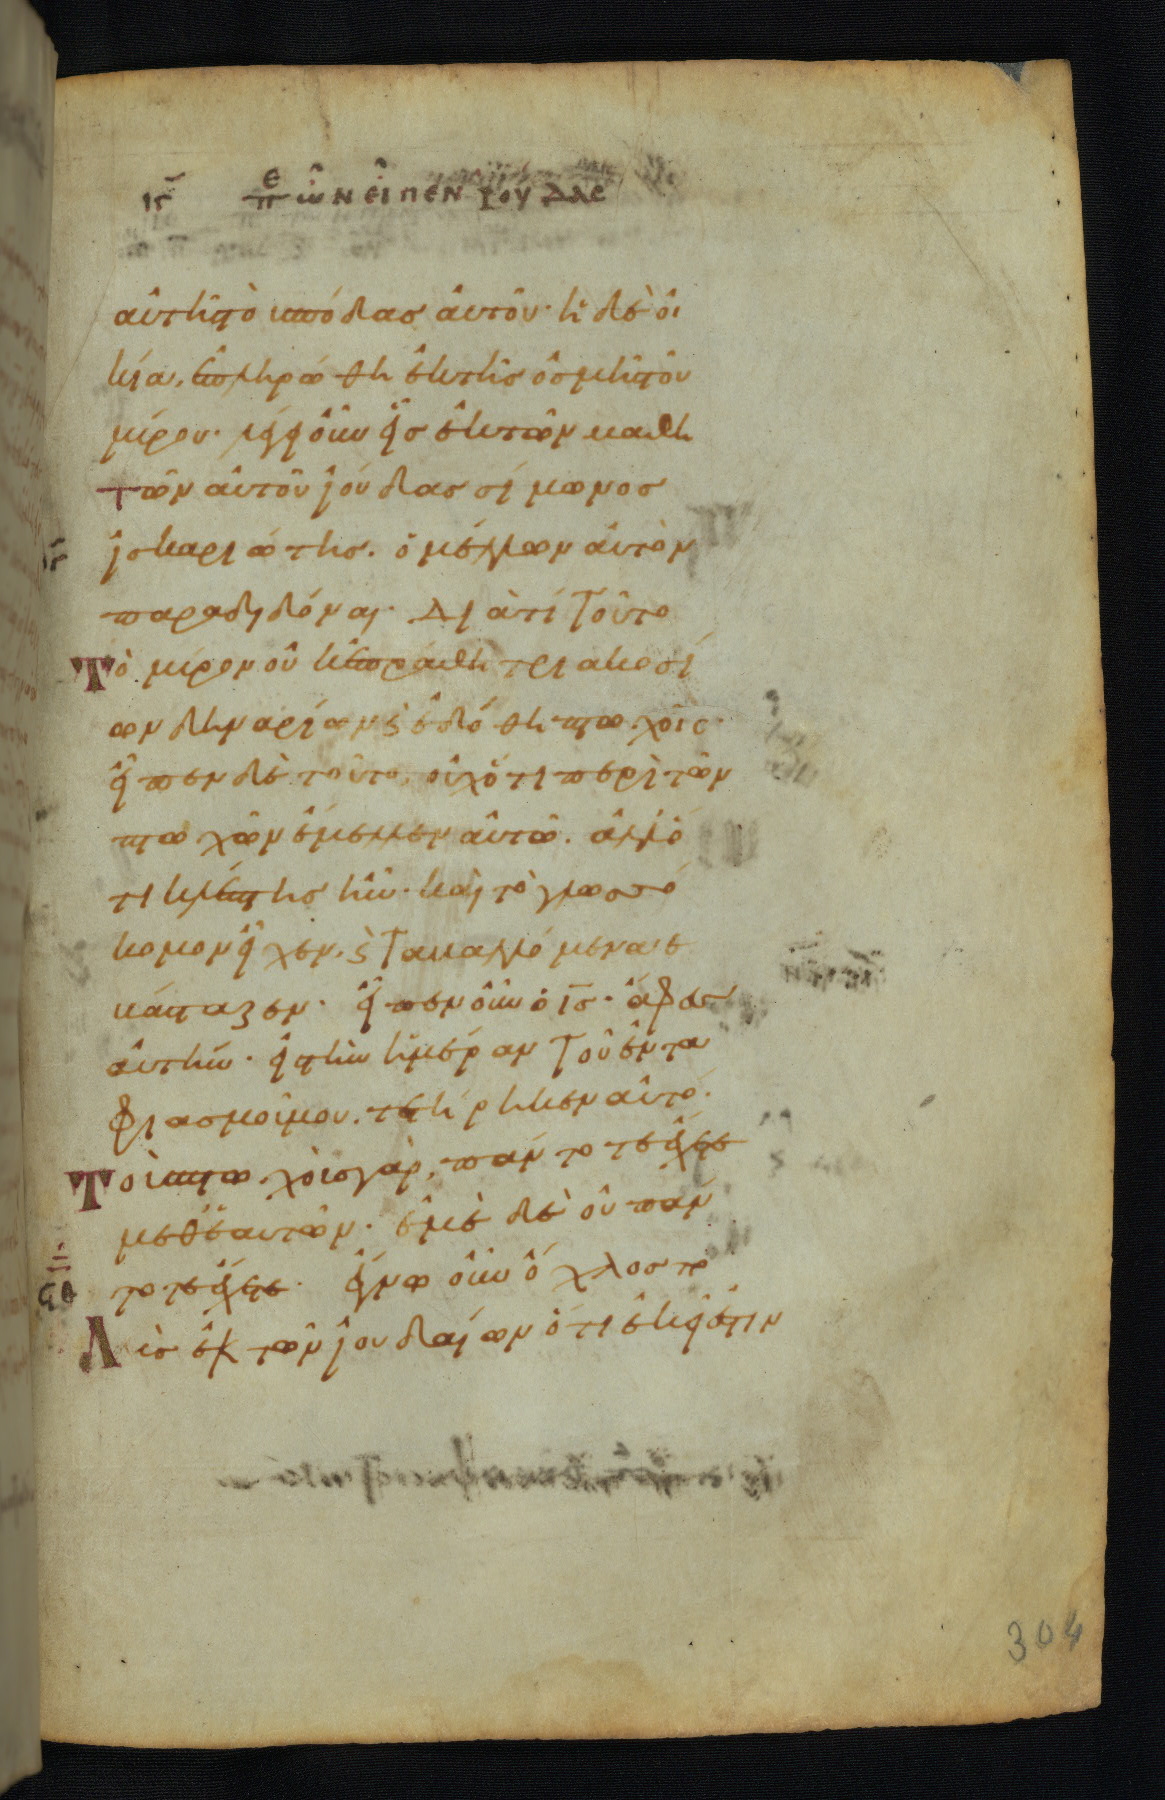 ιϛ ΠΕ ὧν εἶπεν ϊούδας
αὐτῆς τὸ υσ πόδας αὐτοῦ· ἡ δὲ οἰ
κία, ἐπληρώθη ἐκ τῆς ὀσμῆς τοῦ
μύρου· λέγει οὖν εἷς ἐκ τῶν μαθη
τῶν αὐτοῦ ἰούδας σίμωνος
ἰσκαριώτης. ὁ μέλλων αὐτὸν
παραδιδόναι· Διὰ τί τοῦτο
Τὸ μύρον οὐκ ἐπράθη τριακοσί
ων δηναρίων ϗ ἐδόθη πτωχοῖς·
εἶπεν δὲ τοῦτο, οὐχ ὅτι περὶ τῶν
πτωχῶν ἔμελλεν αὐτῶ. ἀλλ' ὅ
τι κλέπτης ἦν· καὶ τὸ γλωσσό
κομον εἶχεν. ϗ τὰ βαλλόμενα ἐ
βάσταζεν· εἶπεν οὖν ὁ ι̅ς̅· ἄφες
αὐτήν· εἰς τὴν ἡμέραν τοῦ ἐντα
φιασμοῦ μου. τετήρηκεν αὐτό·
Τοὺς πτωχοὺς γὰρ, πάντοτε ἔχετε
μεθ' ἑαυτῶν· ἐμὲ δὲ οὐ πάν
τοτε ἔχετε· ἔγνω οὖν ὄχλος πο
Λὺς ἐκ τῶν ἰουδαίων ὅτι ἐκεῖ ἐστιν
ϟθ
304